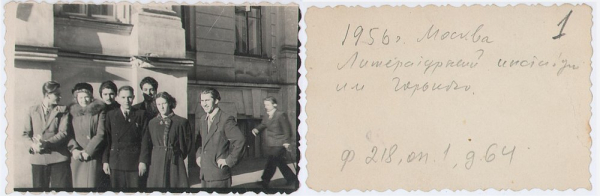 1
1956 г. Москва
Литературный институт
им Горького.
Ф 218, оп. 1, д. 64